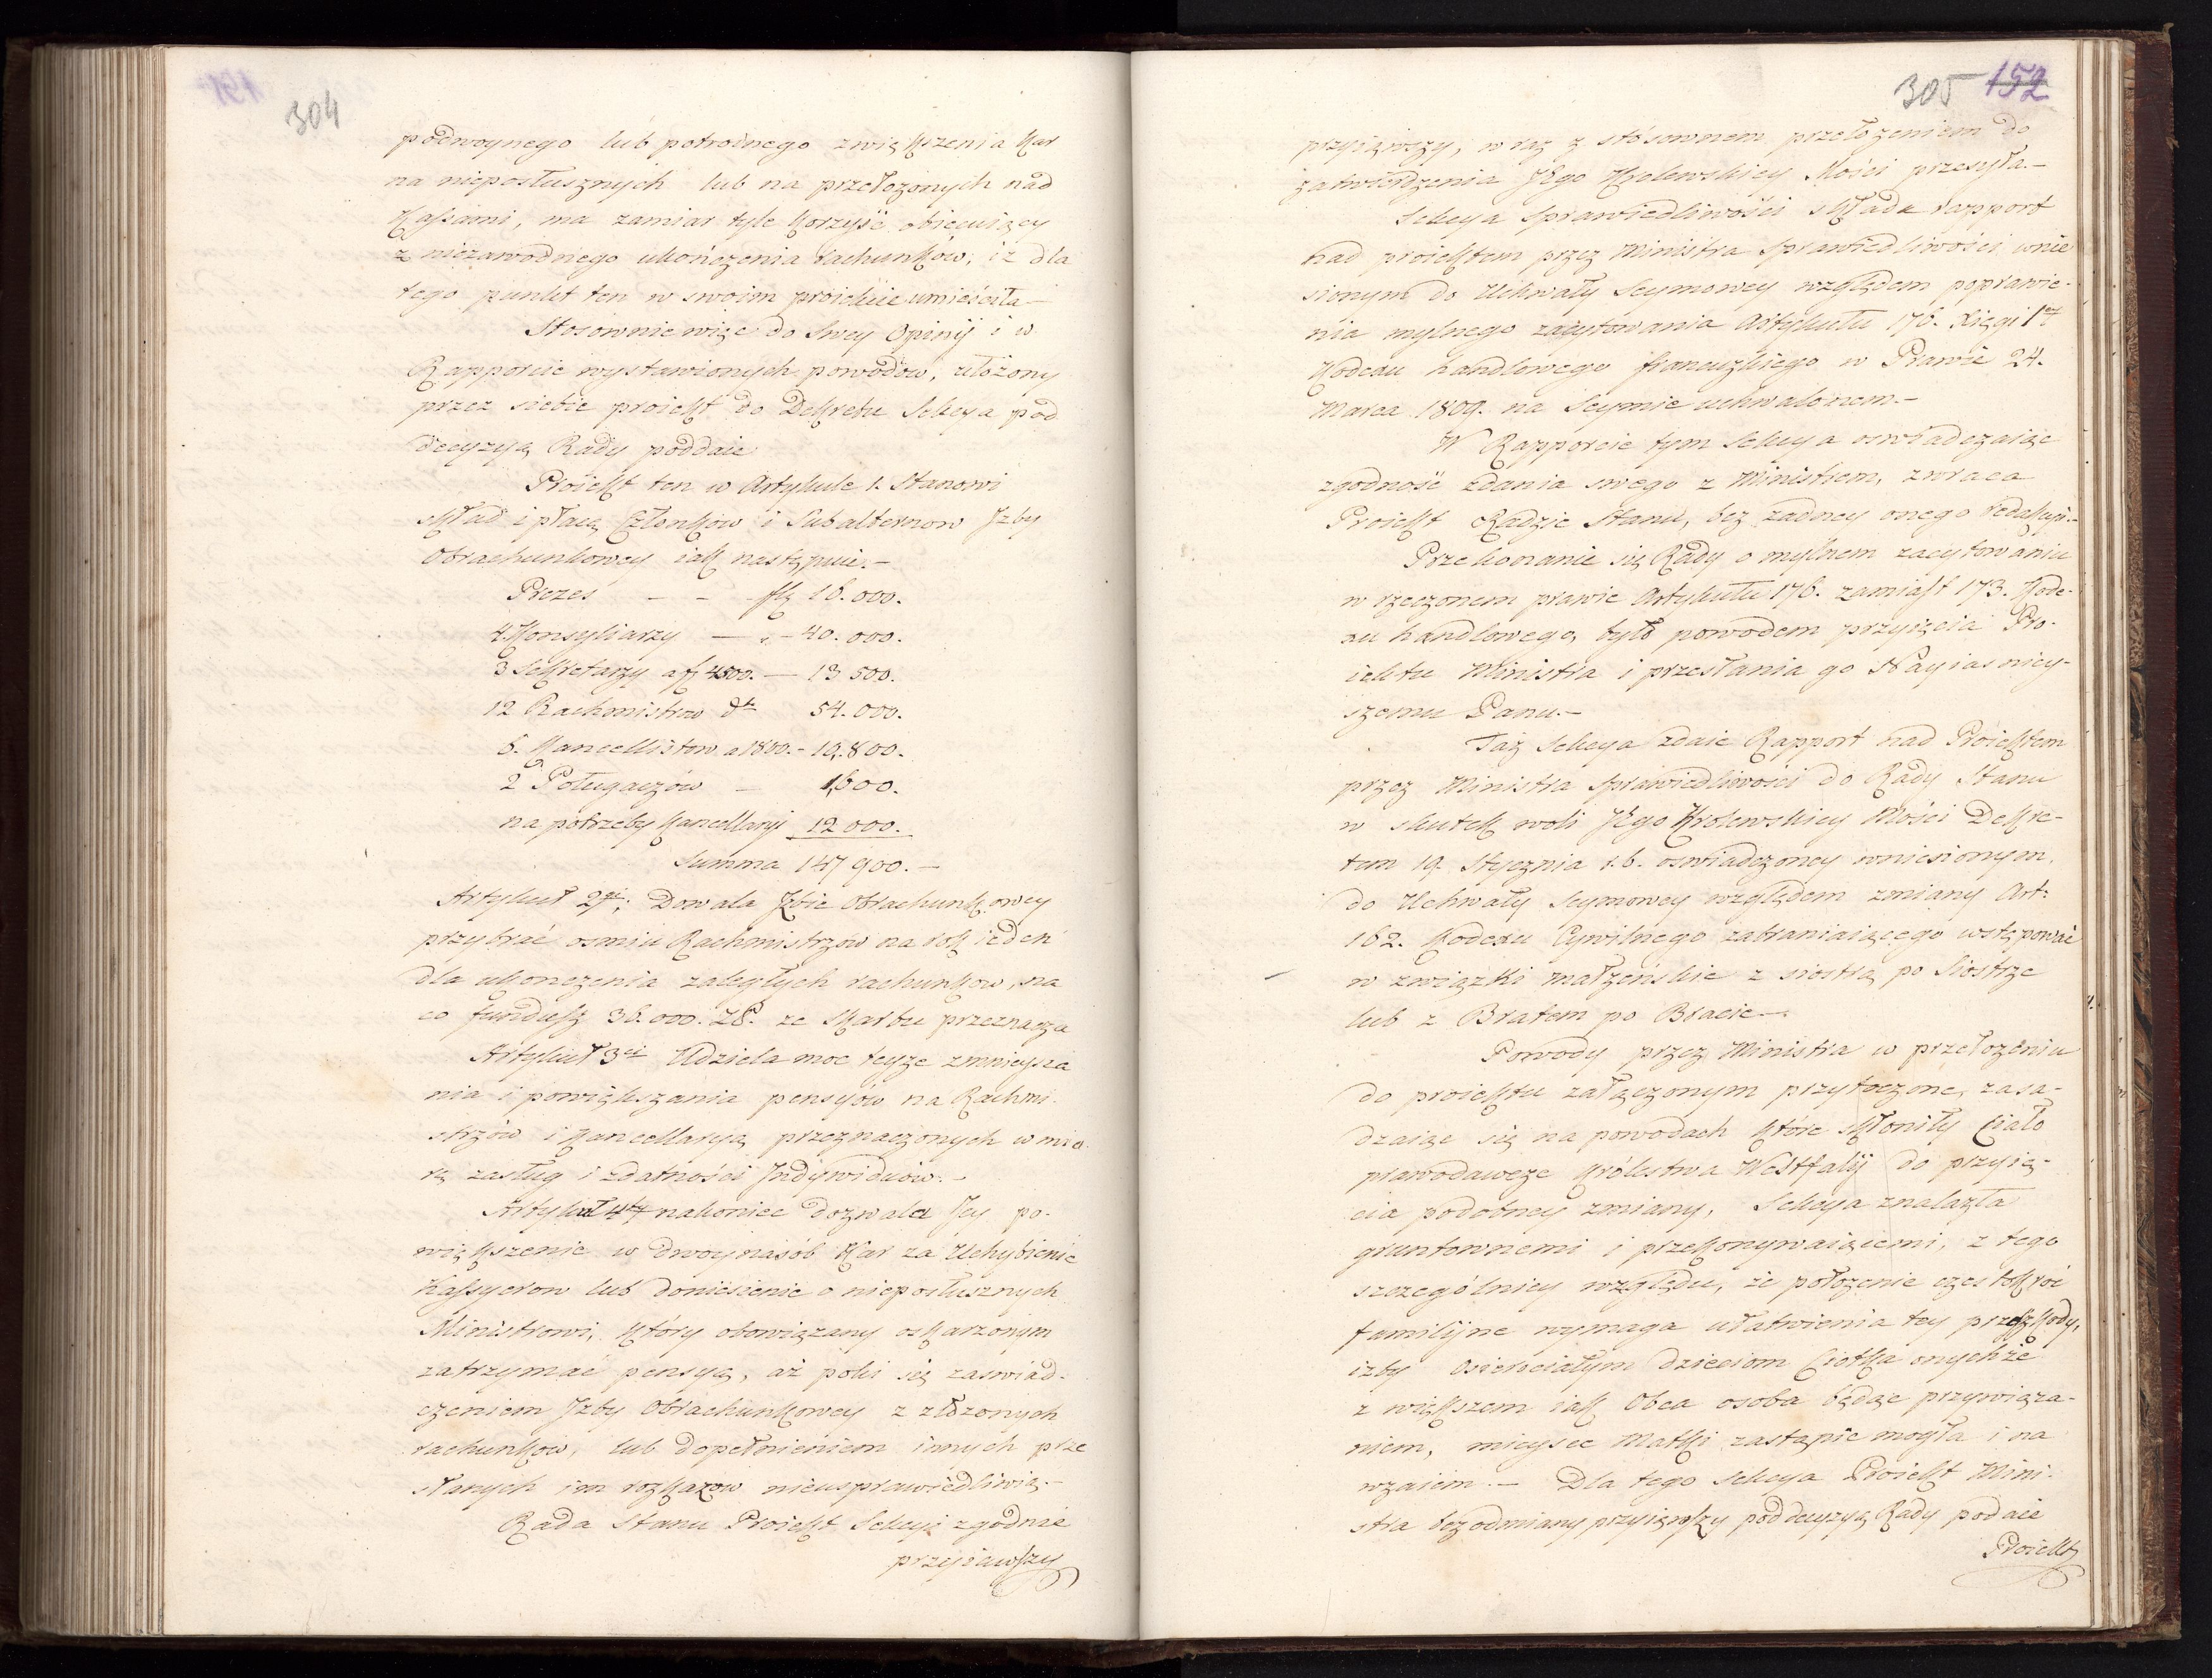 304
podwoynego lub potroinego zwiękzenia kar
na nieposłusznych lub na przełozonych nad
Kassami, ma zamiar tyle korzyść obiecuiący
z niezawodnego ukończenia rachunków, iż dla
tego punkt ten w swoim proiekcie umieściła –
Stosownie więc do Swey Opinij i w
Rapporcie wystawionych powodow, ułożony
przez siebie proiekt do Dekretu Sekcya pod
decyzyą Rady poddaie
Proiekt ten w Artykule 1. Stanowi
skład i płacę Członkow i Subalternow Izby
Obrachunkowey iak następuie. –
Prezes – – – flz 16.000.
4. Konsyliarzy – " – 40.000.
3 Sekretarzy a f. 4500. – 13 500.
12 Rachmistrzow dto 54.000.
6. Kancellistow a 1800. – 10,800.
2 Posługaczów – 1,600.
na potrzeby Kancellaryi 12 000.
Summa 147 900. –
Artykuł 2gi; Dowala Izbie Obrachunkowey
przybrać osmiu Rachmistrzów na rok ieden
dla ukonczenia zaległych rachunkow, na
co fundusz 36.000. Zł. ze Skarbu przeznacza
Artykuł 3ci Udziela moc teyze zmnieysza
nia i powiększania pensyów na Rachmi-
strzów i Kancellaryą przeznaczonych w mia
rę zasług i zdatności Indywiduów. –
Artykuł 4ty nakoniec dozwala Jey po-
większenie w dwoynasób Kar za Uchybienie
Kassyerow lub doniesienie o nieposłusznych
Ministrowi, który obowiązany oskarzonym
zatrzymać pensyą, aż poki się zaswiad-
czeniem Izby Obrachunkowey z złożonych
rachunkow, lub dopełnieniem innych prze
słanych im rozkazow nieusprawiedliwią. –
Rada Stanu Proiekt Sekcyi zgodnie
przyiąwszy
305 152
przyiąwszy, wraz z stósownem przełożeniem do
zatwierdzenia Jego Krolewskiey Mości przesyła. –
Sekcya Sprawiedliwości składa rapport
nad proiektem przez Ministra Sprawiedliwości wnie
sionym do Uchwały Seymowey względem poprawie-
nia mylnego zacytowania Artykułu 176. Xięgi 1ey
Kodexu handlowego francuzkiego w Prawie 24.
Marca 1809. na Seymie uchwalonem. –
W Rapporcie tym Sekcya oswiadczaiąc
zgodność zdania swego z Ministrem, zwraca
Proiekt Radzie Stanu, bez zadney onego redakcyi. –
Przekonanie się Rady o mylnem zacytowaniu
w rzeczonem prawie Artykułu 176. zamiast 173. Kode-
xu handlowego, było powodem przyięcia Pro-
iektu Ministra i przesłania go Nayiasniey-
szemu Panu. –
Taż Sekcya zdaie Rapport nad Proiektem
przez Ministra Sprawiedliwości do Rady Stanu
w skutek woli Jego Krolewskiey Mości Dekre-
tem 19. Stycznia r.b. oswiadczoney wniesionym,
do Uchwały Seymowey względem zmiany Art:
162. Kodexu Cywilnego zabraniaiącego wstępować
w związki małżenskie z siostrą po Siostrze
lub z Bratem po Bracie –.
Powody przez Ministra w przełożeniu
do proiektu załączonym przytoczone, zasa-
dzaiąc się na powodach które skłoniły Ciało
prawodawcze królestwa Westfalij do przyię-
cia podobney zmiany, Sekcya znalazła
gruntownemi i przekonywaiącemi, z tego
szczególniey względu, że położenie częstokroć
familijne wymaga ułatwienia tey przeszkody,
izby osierociałym dzieciom Ciotka onychże
z większem iak Obca osoba będąc przywiąza-
niem, mieysce Matki zastąpić mogła i na
wzaiem. – Dla tego Sekcya Proiekt Mini-
stra bez odmiany przyiąwszy pod decyzyą Rady podaie
Proiekt